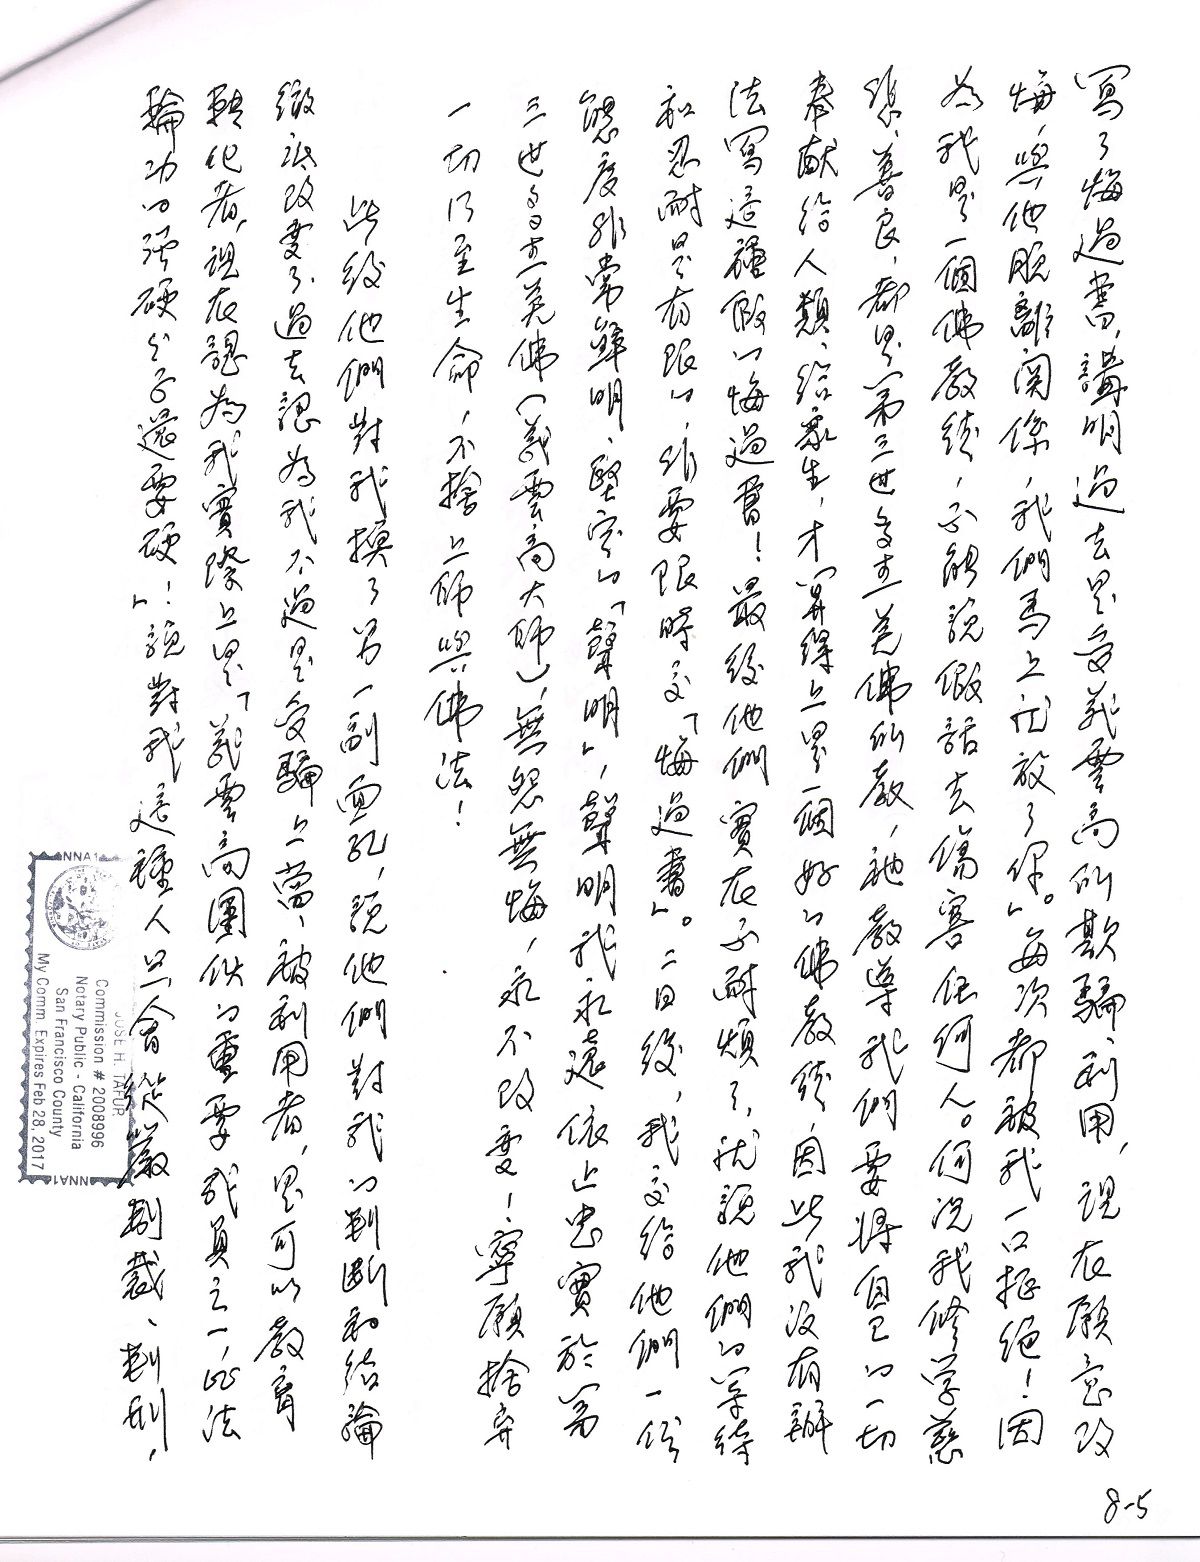 寫了悔過書，講明過去是受義雲高所欺騙、利用，現在願意改
悔，與他脫離関係，我們馬上就放了你」。每次都被我一口拒絕！因
為我是一個佛教徒，不能說假話去傷害任何人。何况我修学慈
悲、善良，都是第三世多杰羌佛所教，祂教導我們要將自己的一切
奉献給人類、給衆生，才算得上是一個好的佛教徒，因此我没有辦
法寫這種假的悔過書！最後他們實在不耐煩了，就說他們的等待
和忍耐是有限的，非要限時交「悔過書」。二日後，我交給他們一份
態度非常鮮明、堅定的「聲明」，聲明我永遠依止忠實於第
三世多杰羌佛（義雲高大師），無怨無悔，永不改變！寧願捨弃
一切乃至生命，不捨上師與佛法！
此後他們對我換了另一副面孔，説他們對我的判断和结論
徹底改變了，過去認為我不過是受騙上當、被利用者，是可以教育
轉化者，現在認為我實際上是「義雲高團伙的重要成員之一，比法
輪功的强硬分子還要硬！」說對我這種人只會從嚴制裁、判刑，
8-5
NNA1
JOSE H. TAFUR
Commission # 2008996
Notary Public - California
San Francisco County
My Comm. Expires Feb 28, 2017
NNA1